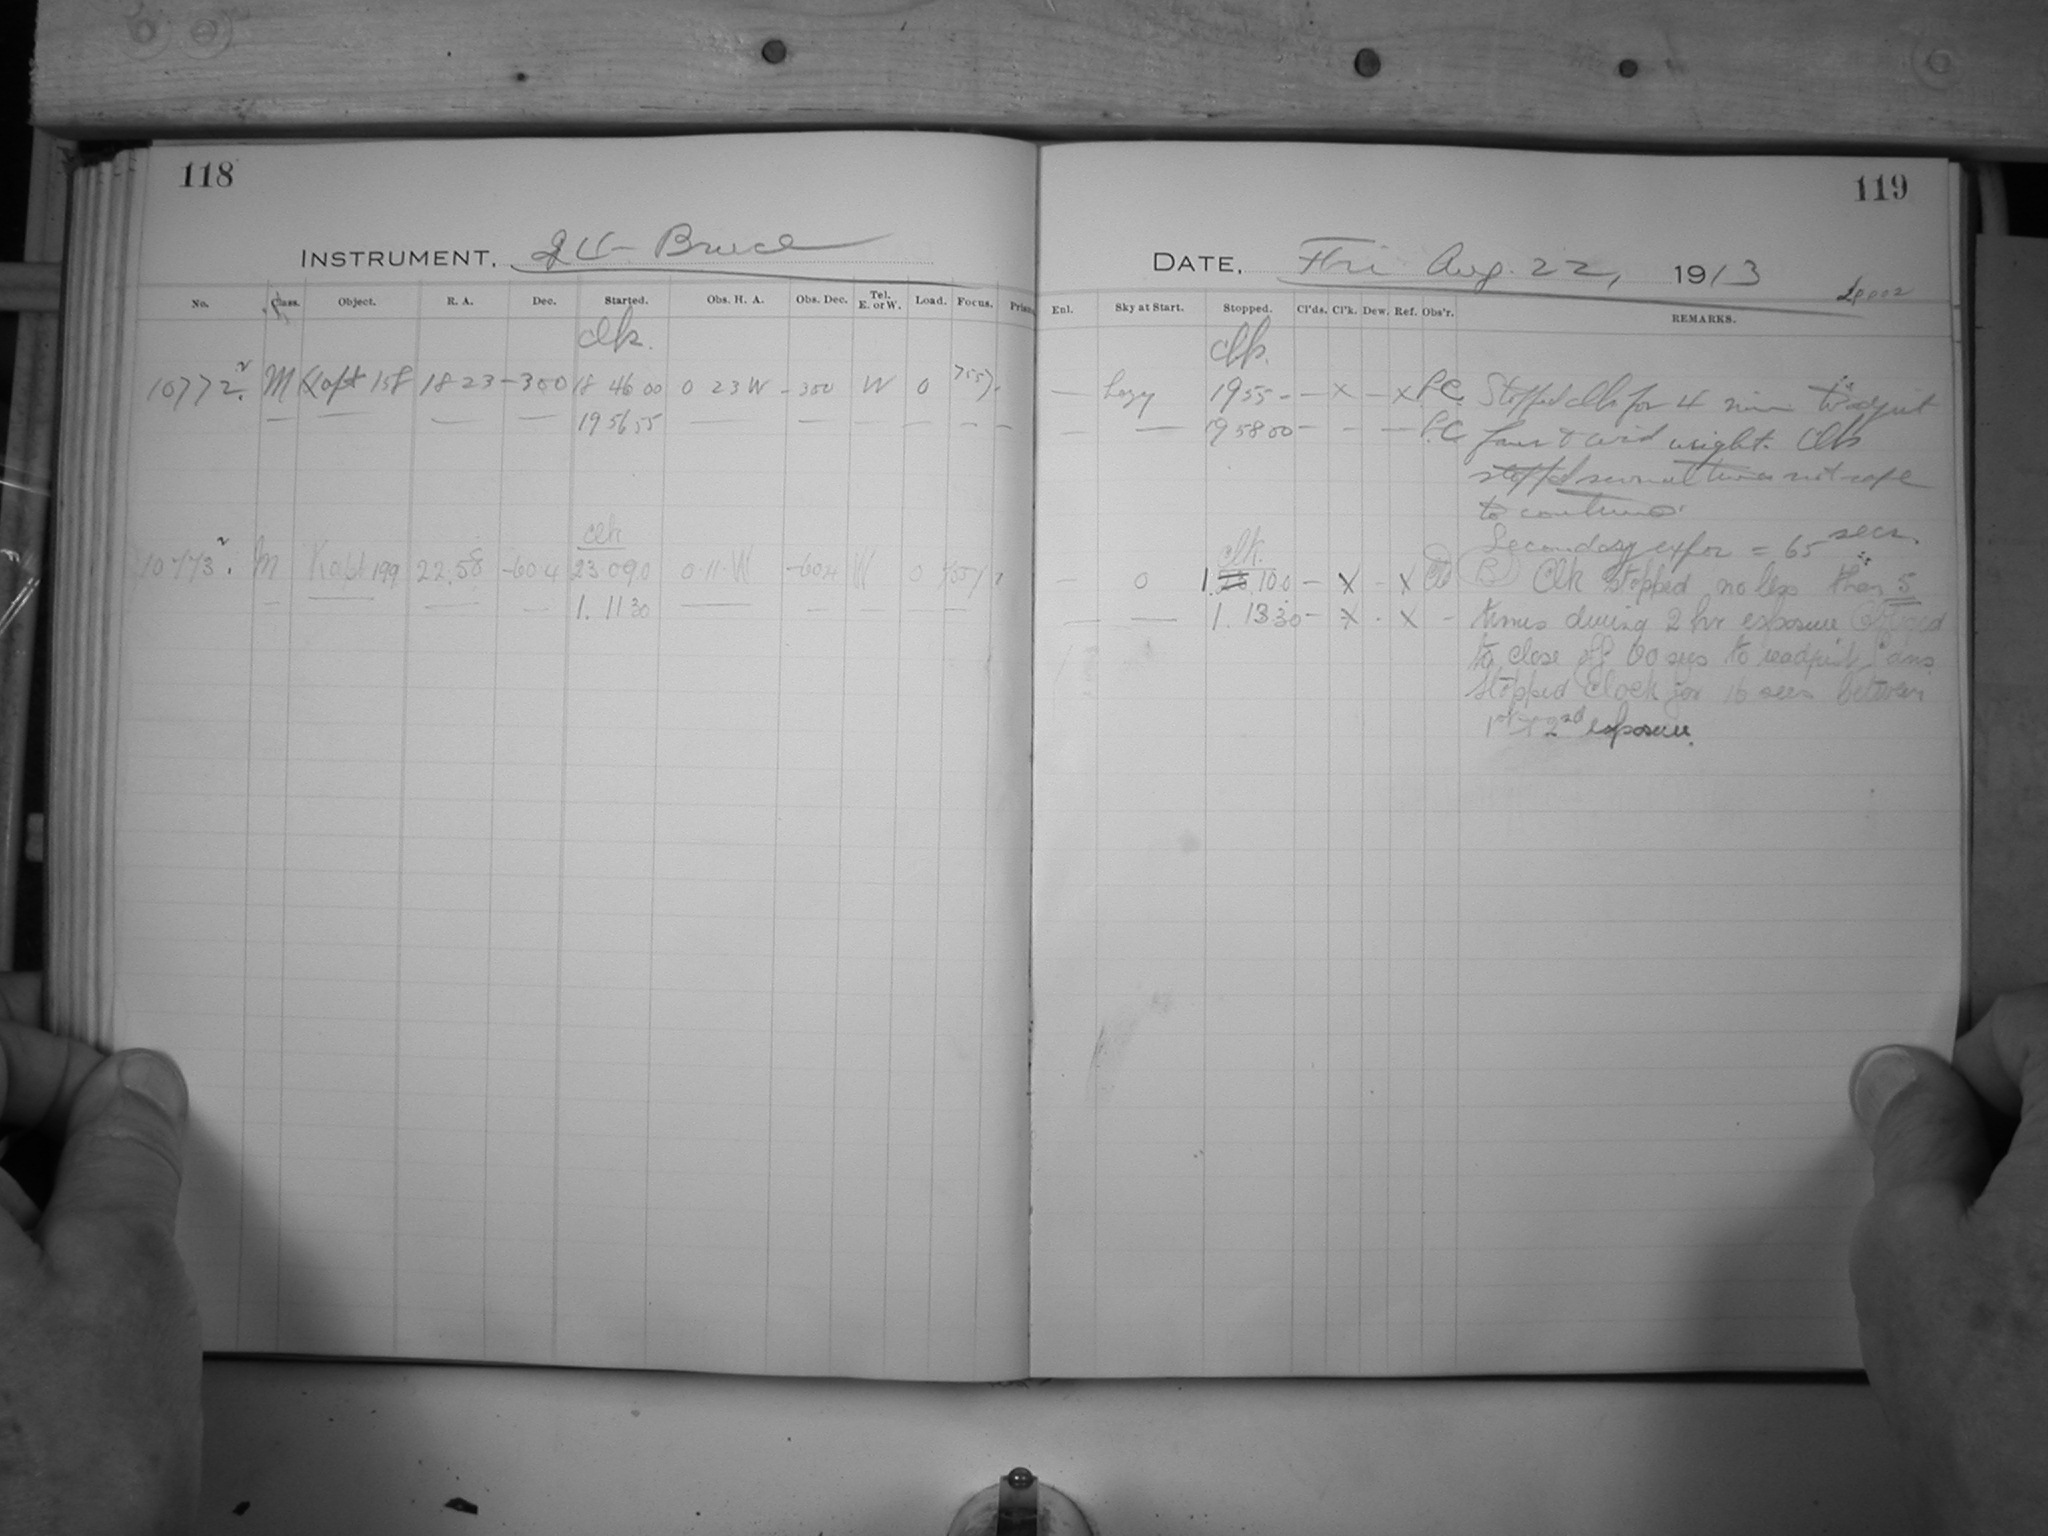 118
119
INSTRUMENT. 24- Bruce
DATE. Fri Aug. 22, 1913
No. Class. Object. R. A. Dec. Started. Obs. H. A. Obs. Dec. Tel. E. or W. Load. Focus.
Enl. Sky at Start. Stopped. Cl'ds. Cl'k. Dew. Ref. Obs'r. REMARKS.
clk.
clk.
10772. M Kapt 158 18 23 -300 18 46 00 0 23 W -300 W 0
— hazy 1955 - — x — x P.C. Stopped clk for 4 min to adjust
— — — — 19 56 55 — — — — — —
— — 19 58 00 - - — P.C fans & wind weight. Clk
stopped several times not safe
to continue.
Secondary expos = 65 secs.
clk
clk.
10773. M Kapt 199 22.58 -60.4 23 09.0 0.11. W -60.4 W 0
— 0 1. 10.0 — x - x Clk stopped no less than 5
— — — — 1. 11 30 — — — — —
— — 1. 13 30 - x . x - times during 2 hr exposure Obliged
to close off 60 secs to readjust fans
Stopped Clock for 16 secs between
1st & 2nd exposure.